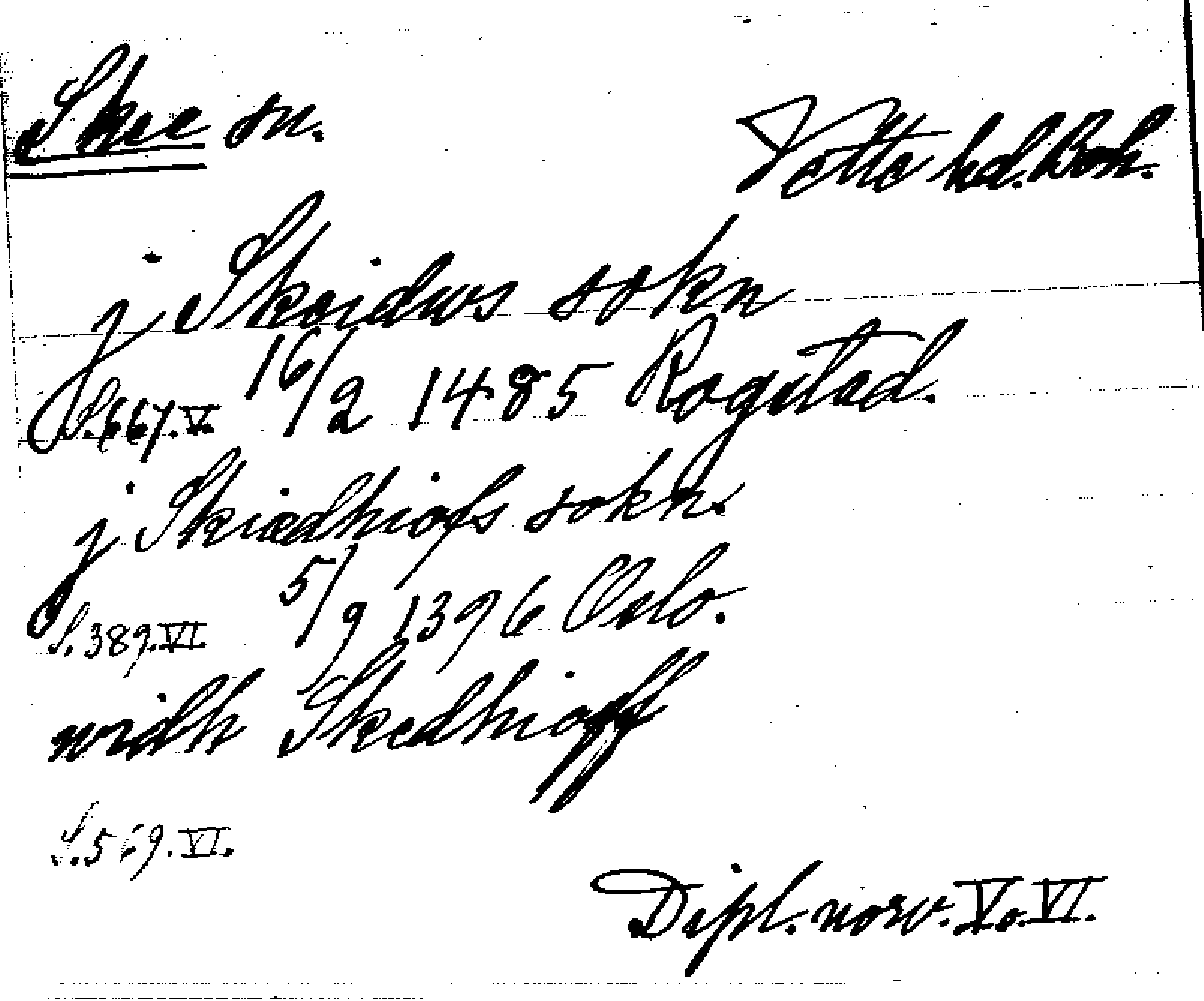 Skee sn. Vette hd. Boh.
j Skeidws sokn
S. 667. V. 16/2 1485 Rogstad.
j Skiædhiofs sokn.
S. 389. VI. 5/9 1396 Oslo.
widh Skedhioff
S. 569. VI.
Dipl. norv. V. o. VI.